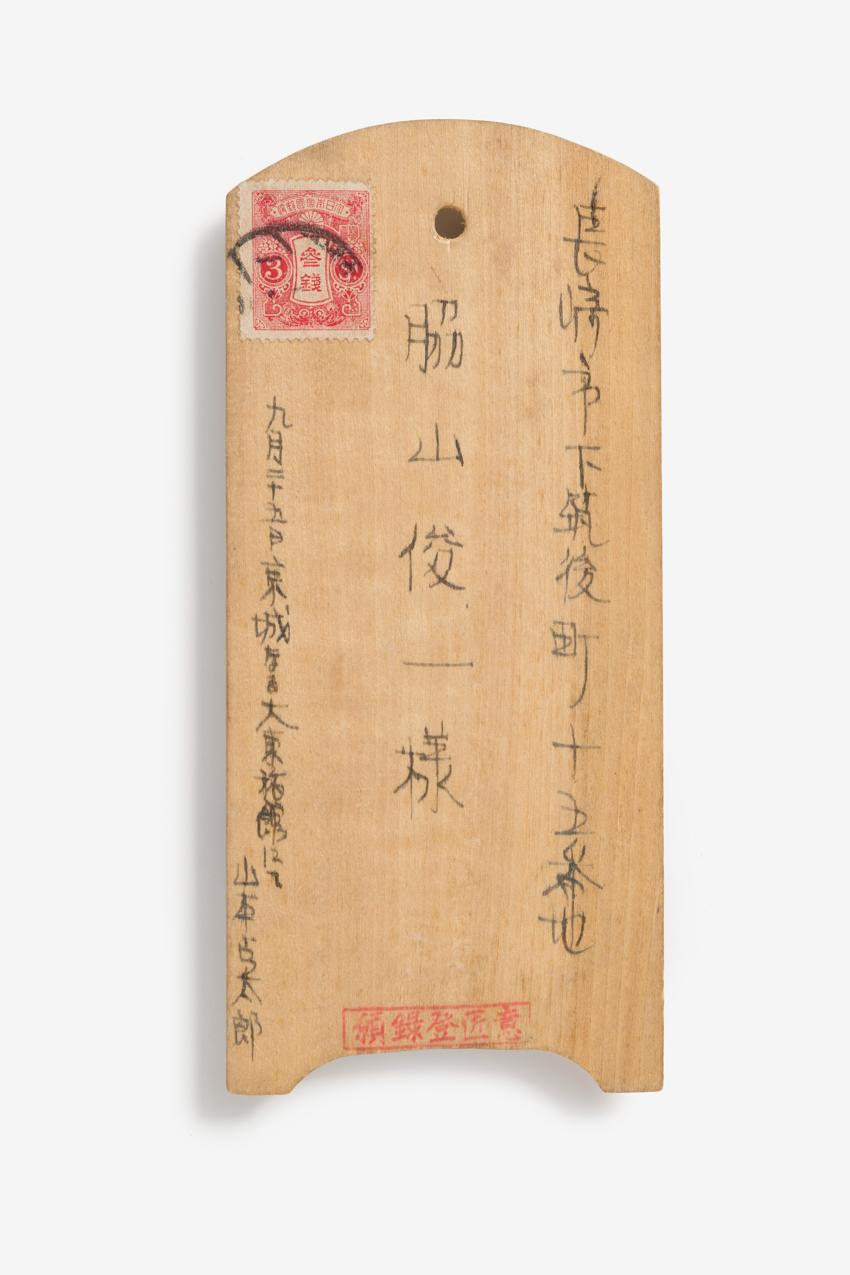 長崎市下筑後町十五番地
脇山俊一様
大日本帝國郵便
3 参錢 3
九月二十五日京城
大東旅館にて
山本 太郎
意匠登錄願